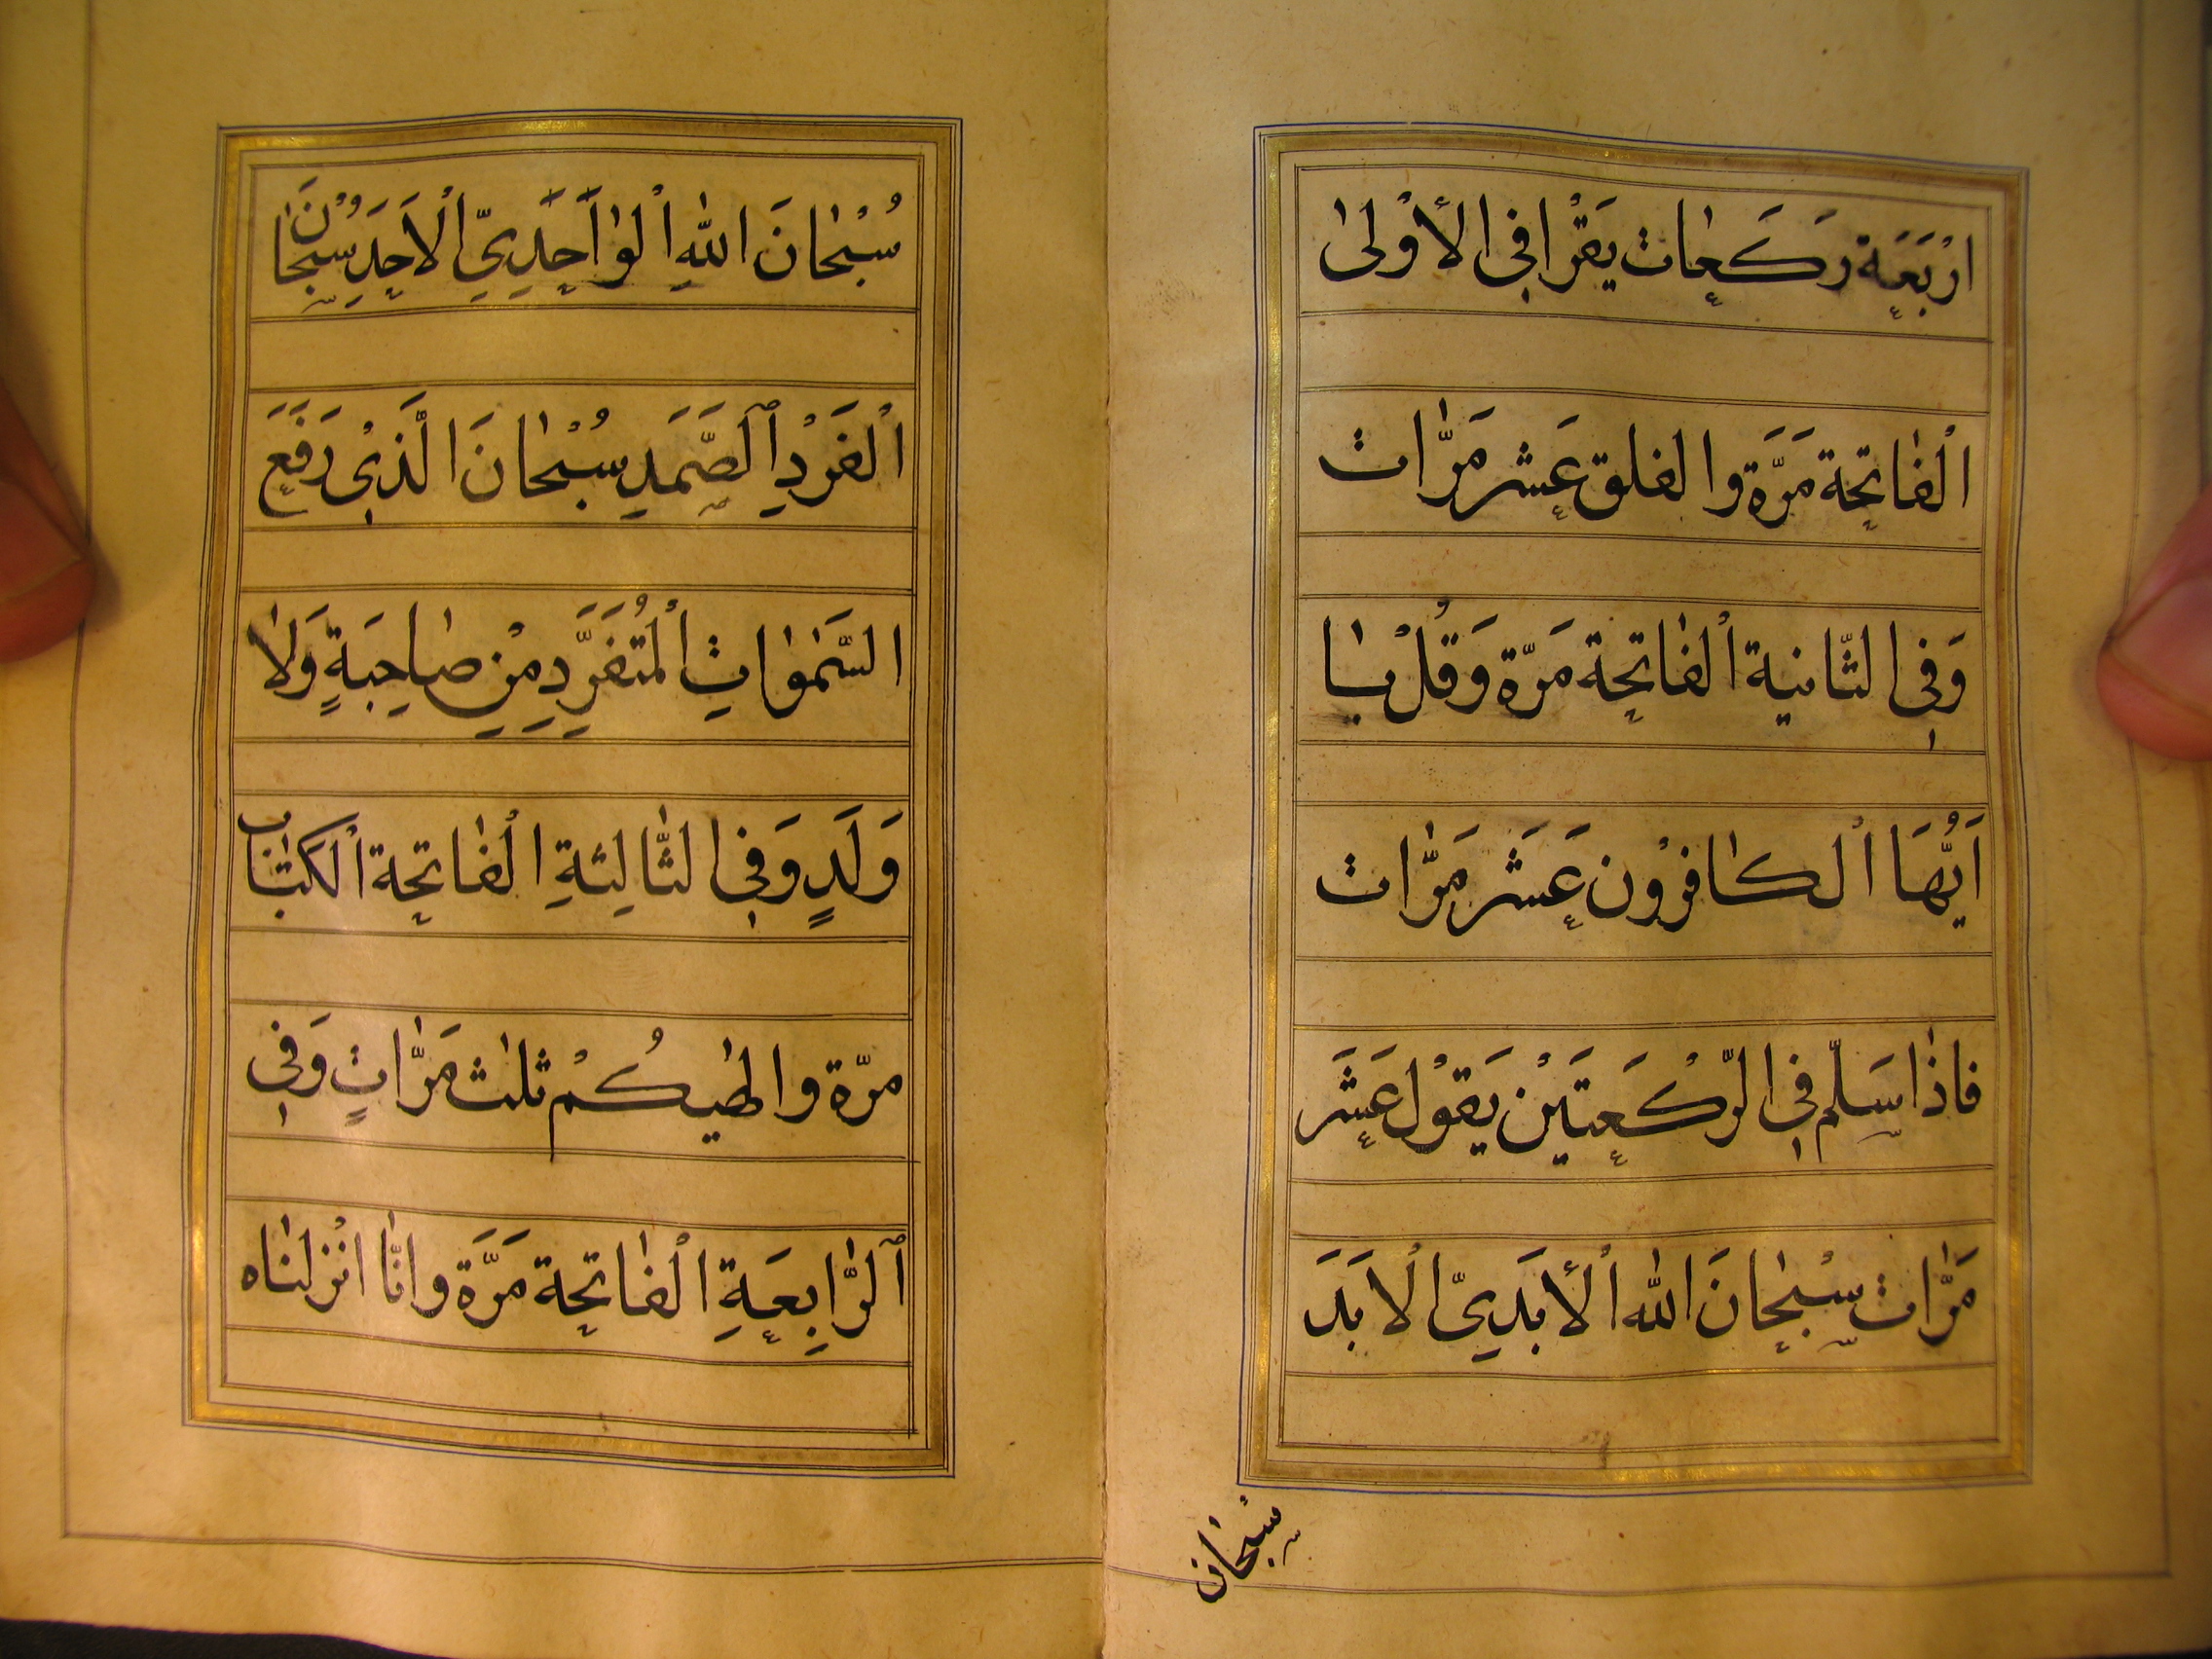 اَرْبَعَة رَكَعٰات يَقْرَا فِي الأُوْلىٰ
اْلفٰاتِحَة مَرَّة وَالفلق عَشر مَرّٰات
وَفِي الثّٰانية اْلفٰاتِحة مَرّة وَقُلْ يٰا
اَيُّهَا اْلكٰافِرُون عَشَر مَرّٰات
فاذٰا سَلّم فِي الرَّكْعَتَيْن يَقوْل عَشَر
مَرّٰات سُبْحٰانَ اللّٰه اْلأَبَدِيّ اْلاَبَدَ
سُبْحٰان
سُبْحٰانَ اللّٰهِ اْلوٰاحَدِيِّ اْلاَحَدِ سُبْحٰانَ
اْلفَرْدِ اَلصَّمَدِ سُبْحٰانَ الَّذِيْ رَفَعَ
السَّمٰوٰاتِ اْلمُتَفَرَّدِ مِنْ صٰاحِبَةٍ وَلاٰ
وَلَدٍ وَفِي الثّٰالِثَةِ اْلفٰاتِحَة اْلكتٰاب
مرّة وَالهٰيكُمْ ثلٰث مَرّٰاتٍ وَفِي
اَلرّٰابِعَةِ اْلفٰاتِحَة مَرَّة وانّٰا انْزلنٰاه